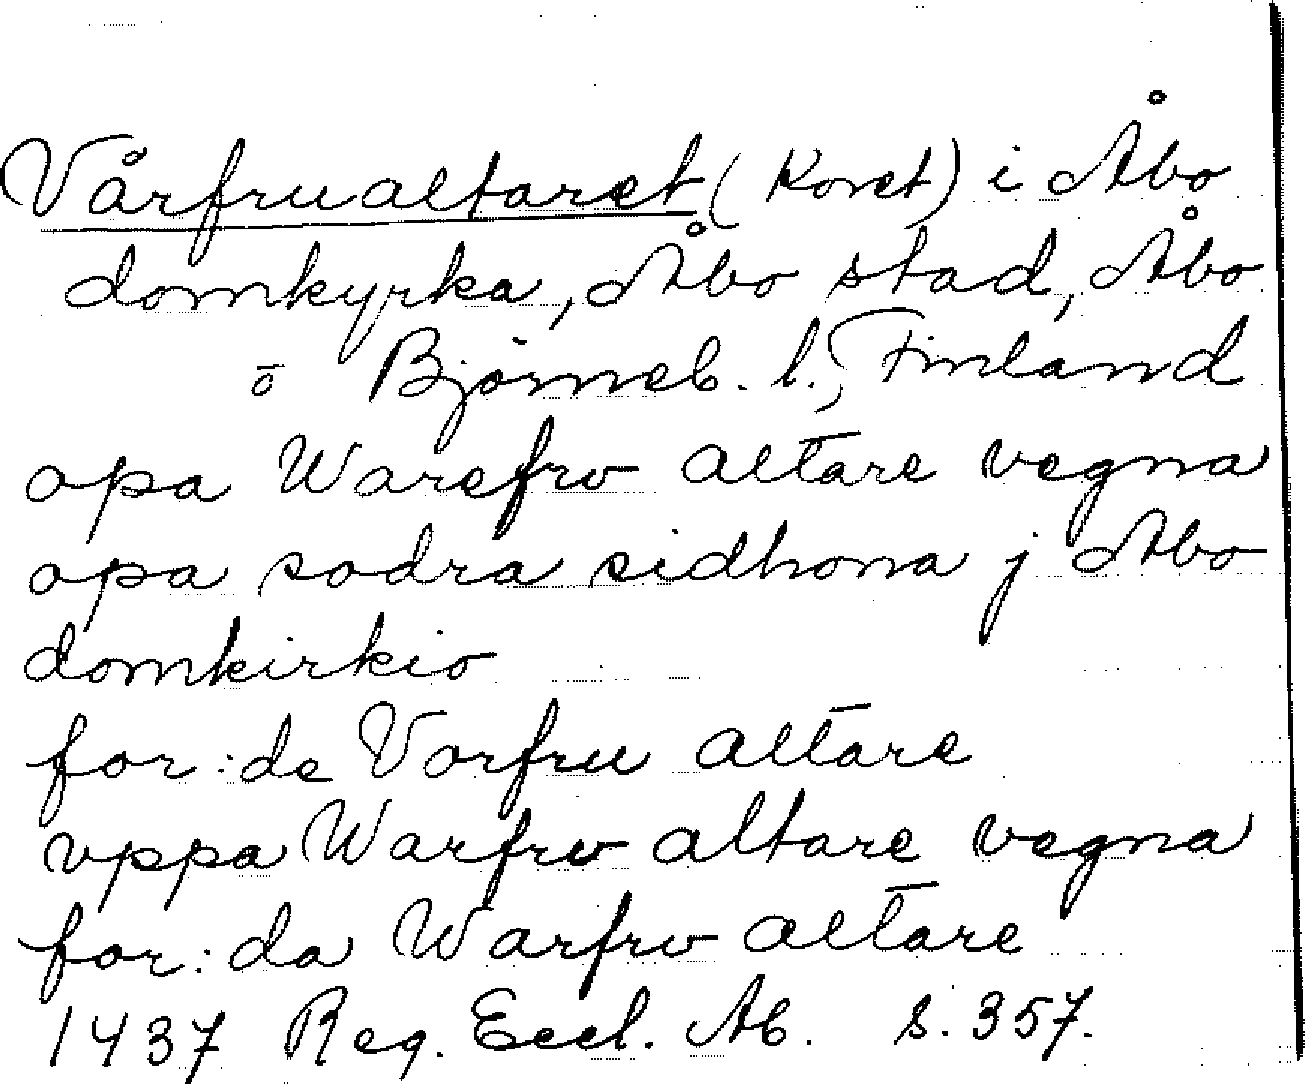 Vårfrualtaret (Koret) i Åbo
domkyrka, Åbo stad, Åbo
o Björneb. l., Finland
opa Warefrv altare vegna
opa sodra sidhona j Abo
domkirkio
for:de Vorfru altare
vppa Warfrv altare vegna
for:da Warfrv altare
1437 Reg. Eccl. Ab. s. 357.